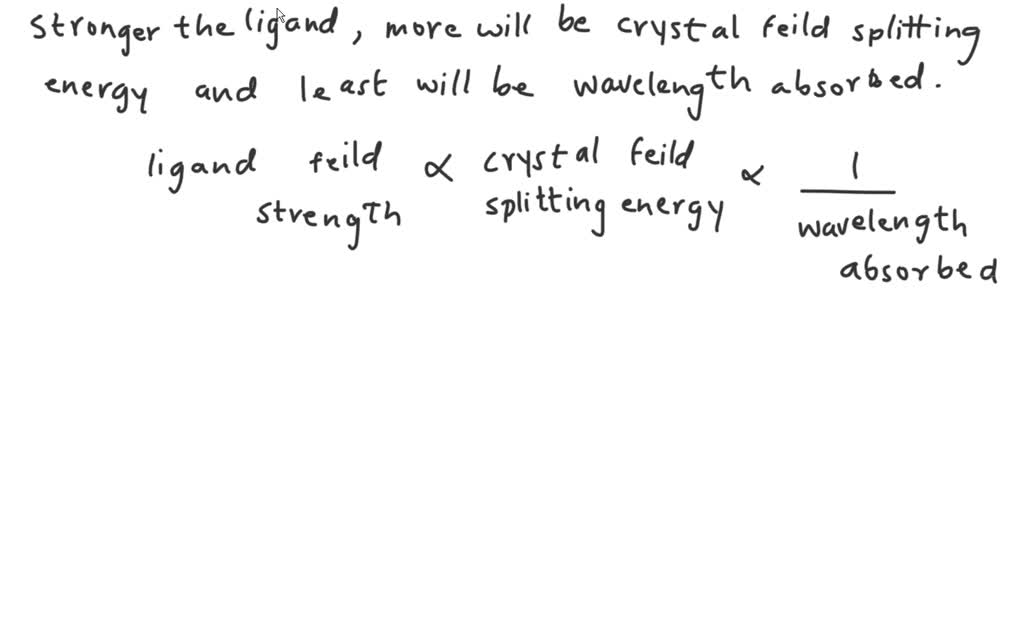 Stronger the ligand, more will be crystal feild splitting
energy and least will be wavelength absorbed.
ligand feild strength ∝ crystal feild splitting energy ∝ 1 / wavelength absorbed